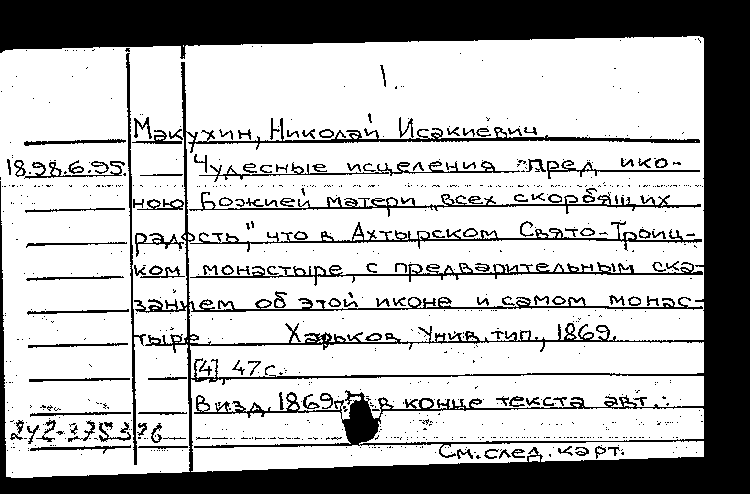 1.
Макухин, Николай Исакиевич.
18.98.6.95. Чудесные исцеления пред ико-
ною Божией матери „всех скорбящих
радость," что в Ахтырском Свято-Троиц-
ком монастыре, с предварительным ска-
занием об этой иконе и самом монас-
тыре. Харьков, Унив. тип., 1869.
[4], 47 с.
В изд. 1869 в конце текста авт.:
242-375,376
См. след. карт.